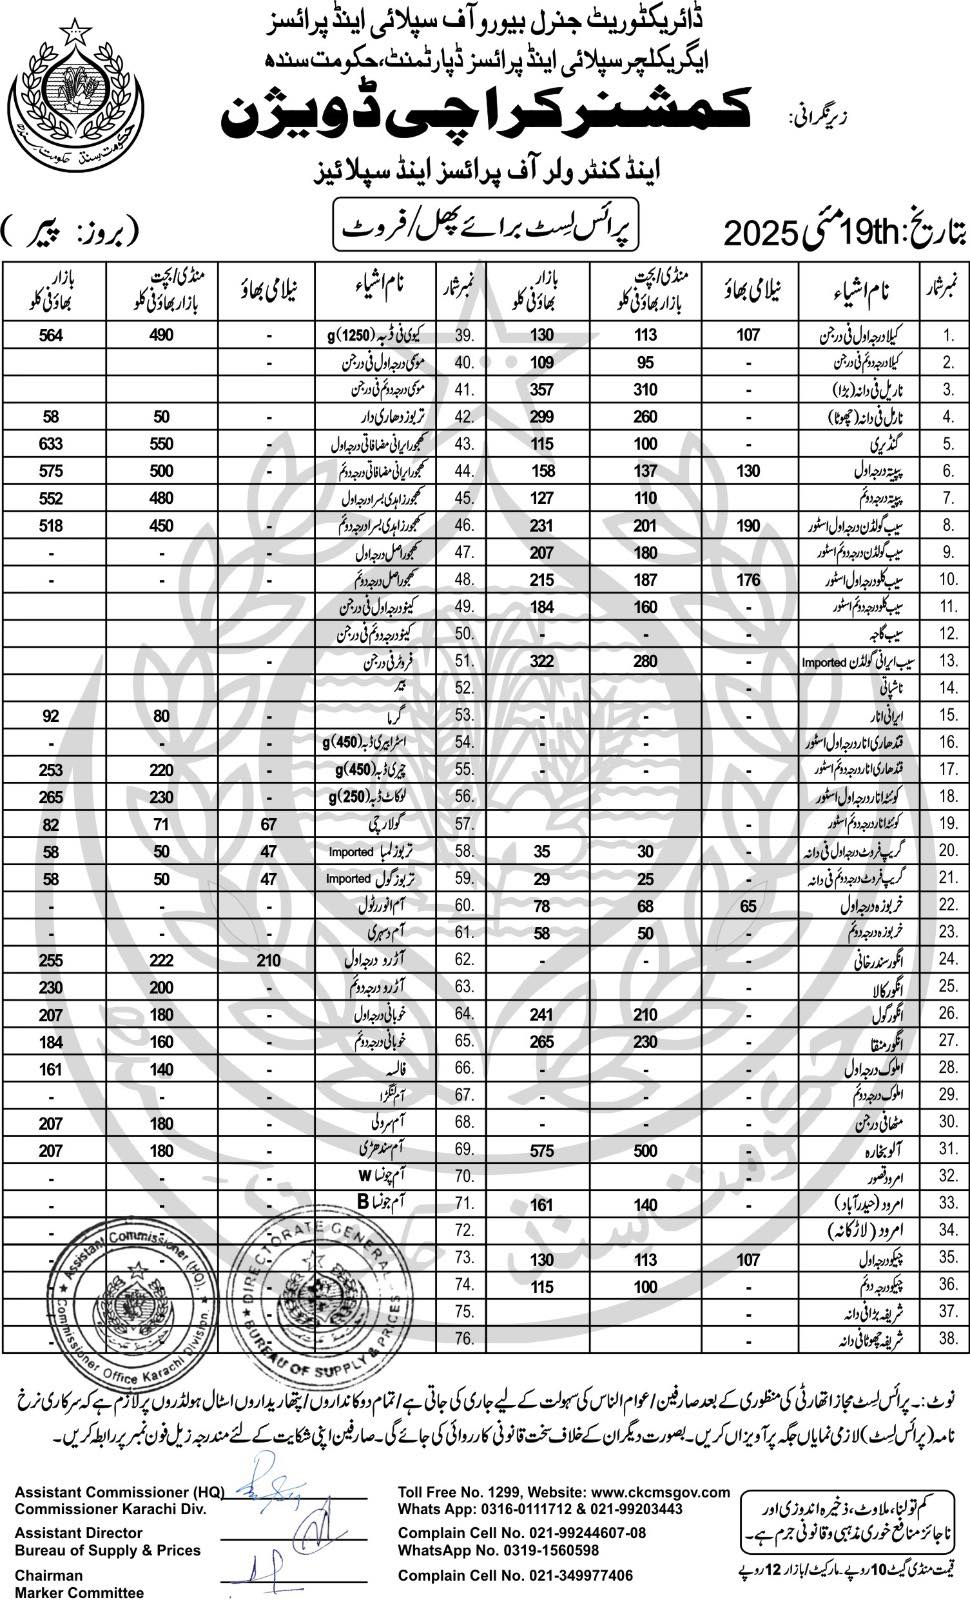 ڈائریکٹوریٹ جنرل بیورو آف سپلائی اینڈ پرائسز
ایگریکلچر سپلائی اینڈ پرائسز ڈپارٹمنٹ، حکومت سندھ
زیرنگرانی: کمشنر کراچی ڈویژن
اینڈ کنٹرولر آف پرائسز اینڈ سپلائیز
بتاریخ: 19th مئی 2025 پرائس لسٹ برائے پھل/فروٹ (بروز: پیر)
نمبرشمار نام اشیاء نیلامی بھاؤ منڈی/بچت بازار بھاؤ فی کلو بازار بھاؤ فی کلو نمبرشمار نام اشیاء نیلامی بھاؤ منڈی/بچت بازار بھاؤ فی کلو بازار بھاؤ فی کلو
1. کیلا درجہ اول فی درجن 107 113 130 39. کیوی فی ڈبہ (1250)g - 490 564
2. کیلا درجہ دوئم فی درجن - 95 109 40. موسمی درجہ اول فی درجن -
3. ناریل فی دانہ (بڑا) 310 357 41. موسمی درجہ دوئم فی درجن
4. ناریل فی دانہ (چھوٹا) - 260 299 42. تربوز دھاری دار - 50 58
5. گنڈیری - 100 115 43. کھجور ایرانی مضافاتی درجہ اول - 550 633
6. پپیتہ درجہ اول 130 137 158 44. کھجور ایرانی مضافاتی درجہ دوئم - 500 575
7. پپیتہ درجہ دوئم - 110 127 45. کھجور زاہدی بسرا درجہ اول - 480 552
8. سیب گولڈن درجہ اول اسٹور 190 201 231 46. کھجور زاہدی بسرا درجہ دوئم - 450 518
9. سیب گولڈن درجہ دوئم اسٹور - 180 207 47. کھجور اصل درجہ اول - - -
10. سیب کلو درجہ اول اسٹور 176 187 215 48. کھجور اصل درجہ دوئم - - -
11. سیب کلو درجہ دوئم اسٹور - 160 184 49. کینو درجہ اول فی درجن -
12. سیب گاجہ - - - 50. کینو درجہ دوئم فی درجن
13. سیب ایرانی گولڈن Imported - 280 322 51. فروٹر فی درجن -
14. ناشپاتی - 52. بیر
15. ایرانی انار - - - 53. گرما - 80 92
16. قندھاری انار درجہ اول اسٹور - - - 54. اسٹرابیری ڈبہ (450)g - - -
17. قندھاری انار درجہ دوئم اسٹور - - - 55. چیری ڈبہ (450)g - 220 253
18. کوئٹہ انار درجہ اول اسٹور 56. لوکاٹ ڈبہ (250)g - 230 265
19. کوئٹہ انار درجہ دوئم اسٹور - 57. گولارچی 67 71 82
20. گریپ فروٹ درجہ اول فی دانہ - 30 35 58. تربوز لمبا Imported 47 50 58
21. گریپ فروٹ درجہ دوئم فی دانہ - 25 29 59. تربوز گول Imported 47 50 58
22. خربوزہ درجہ اول 65 68 78 60. آم انور رٹول - - -
23. خربوزہ درجہ دوئم - 50 58 61. آم دسہری - - -
24. انگور سندرخانی - - - 62. آڑو درجہ اول 210 222 255
25. انگور کالا 63. آڑو درجہ دوئم - 200 230
26. انگور گول - 210 241 64. خوبانی درجہ اول - 180 207
27. انگور منقا - 230 265 65. خوبانی درجہ دوئم - 160 184
28. املوک درجہ اول - - - 66. فالسہ - 140 161
29. املوک درجہ دوئم - - - 67. آم لنگڑا - - -
30. مٹھا فی درجن - - - 68. آم سرولی - 180 207
31. آلو بخارہ - 500 575 69. آم سندھڑی - 180 207
32. امرود قصور - 70. آم چونسا W - - -
33. امرود (حیدرآباد) - 140 161 71. آم چونسا B - - -
34. امرود (لاڑکانہ) 72. -
35. چیکو درجہ اول 107 113 130 73. -
36. چیکو درجہ دوئم - 100 115 74.
37. شریفہ بڑا فی دانہ - 75.
38. شریفہ چھوٹا فی دانہ - 76. -
Assistant Commissioner (HQ).
Commissioner Office Karachi Division.
DIRECTORATE GENERAL
BUREAU OF SUPPLY & PRICES
نوٹ:۔ پرائس لسٹ مجاز اتھارٹی کی منظوری کے بعد صارفین/عوام الناس کی سہولت کے لیے جاری کی جاتی ہے/تمام دوکانداروں/پتھاریداروں اسٹال ہولڈروں پر لازم ہے کہ سرکاری نرخ
نامہ (پرائس لسٹ) لازمی نمایاں جگہ پر آویزاں کریں۔ بصورت دیگر ان کے خلاف سخت قانونی کارروائی کی جائے گی۔ صارفین اپنی شکایت کے لئے مندرجہ زیل فون نمبر پر رابطہ کریں۔
Assistant Commissioner (HQ)
Commissioner Karachi Div.
Assistant Director
Bureau of Supply & Prices
Chairman
Marker Committee
Toll Free No. 1299, Website: www.ckcmsgov.com
Whats App: 0316-0111712 & 021-99203443
Complain Cell No. 021-99244607-08
WhatsApp No. 0319-1560598
Complain Cell No. 021-349977406
کم تولنا، ملاوٹ، ذخیرہ اندوزی اور
ناجائز منافع خوری مذہبی و قانونی جرم ہے۔
قیمت منڈی گیٹ 10 روپے۔ مارکیٹ/بازار 12 روپے